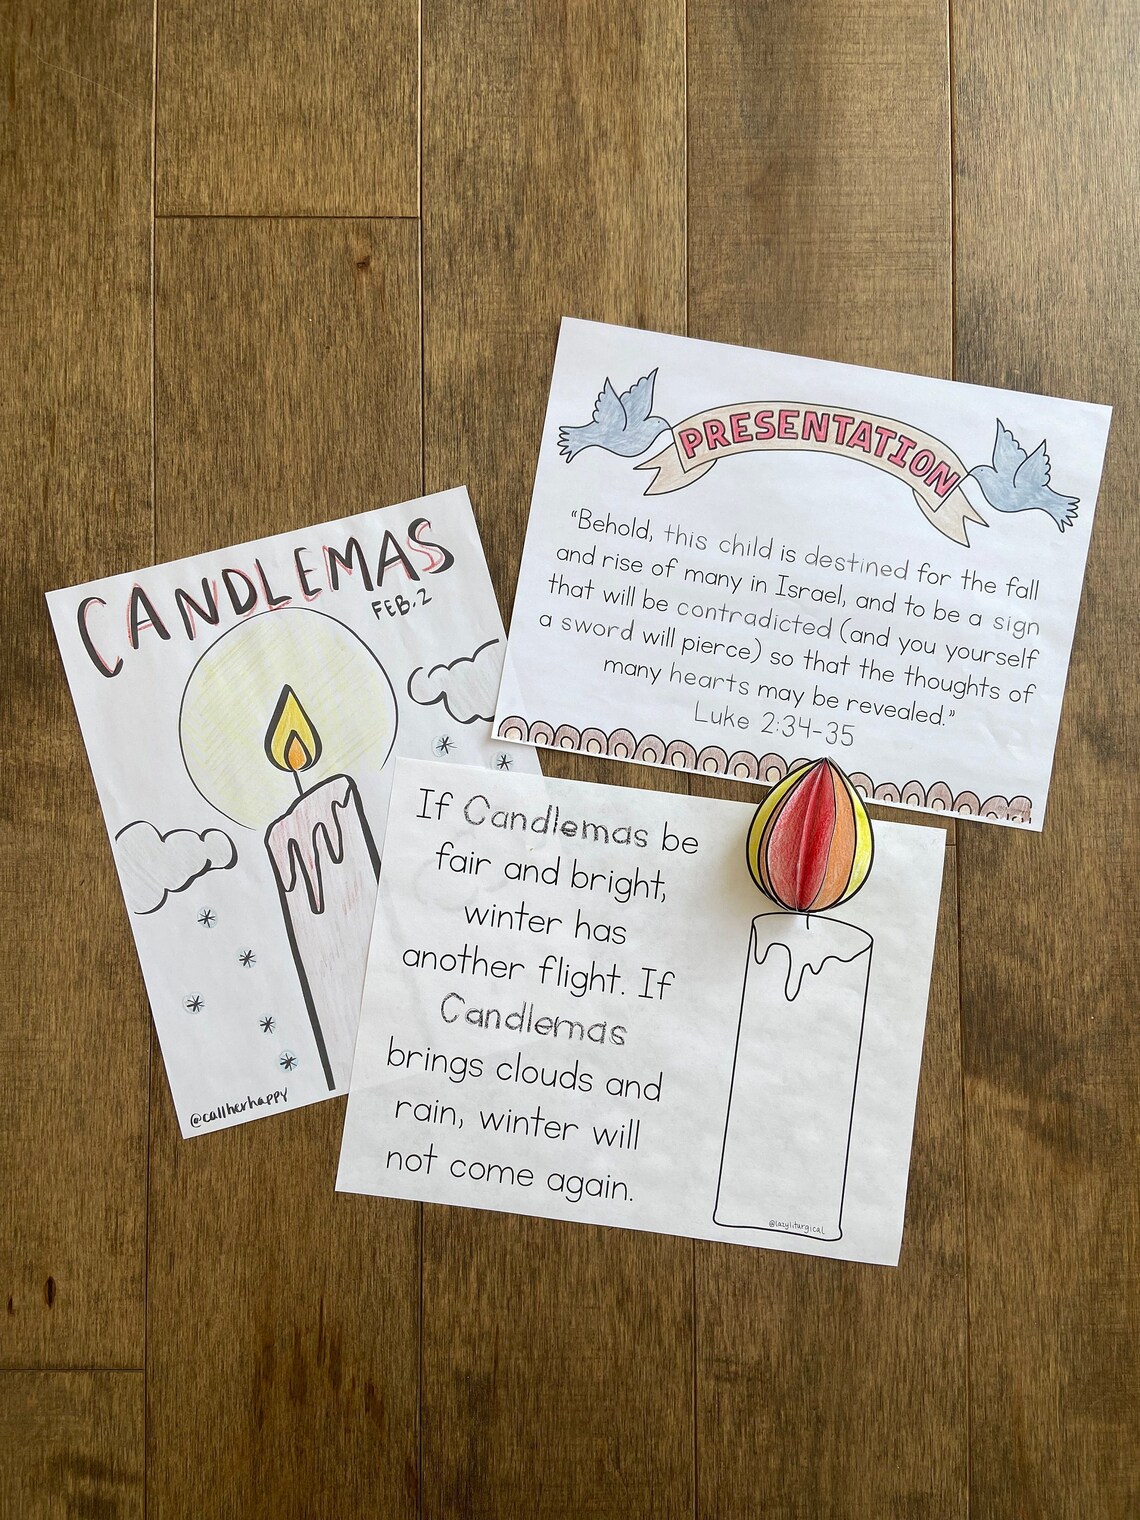 CANDLEMAS
FEB. 2
@callherhappy
PRESENTATION
“Behold, this child is destined for the fall
and rise of many in Israel, and to be a sign
that will be contradicted (and you yourself
a sword will pierce) so that the thoughts of
many hearts may be revealed.”
Luke 2:34-35
If Candlemas be
fair and bright,
winter has
another flight. If
Candlemas
brings clouds and
rain, winter will
not come again.
@lazyliturgical